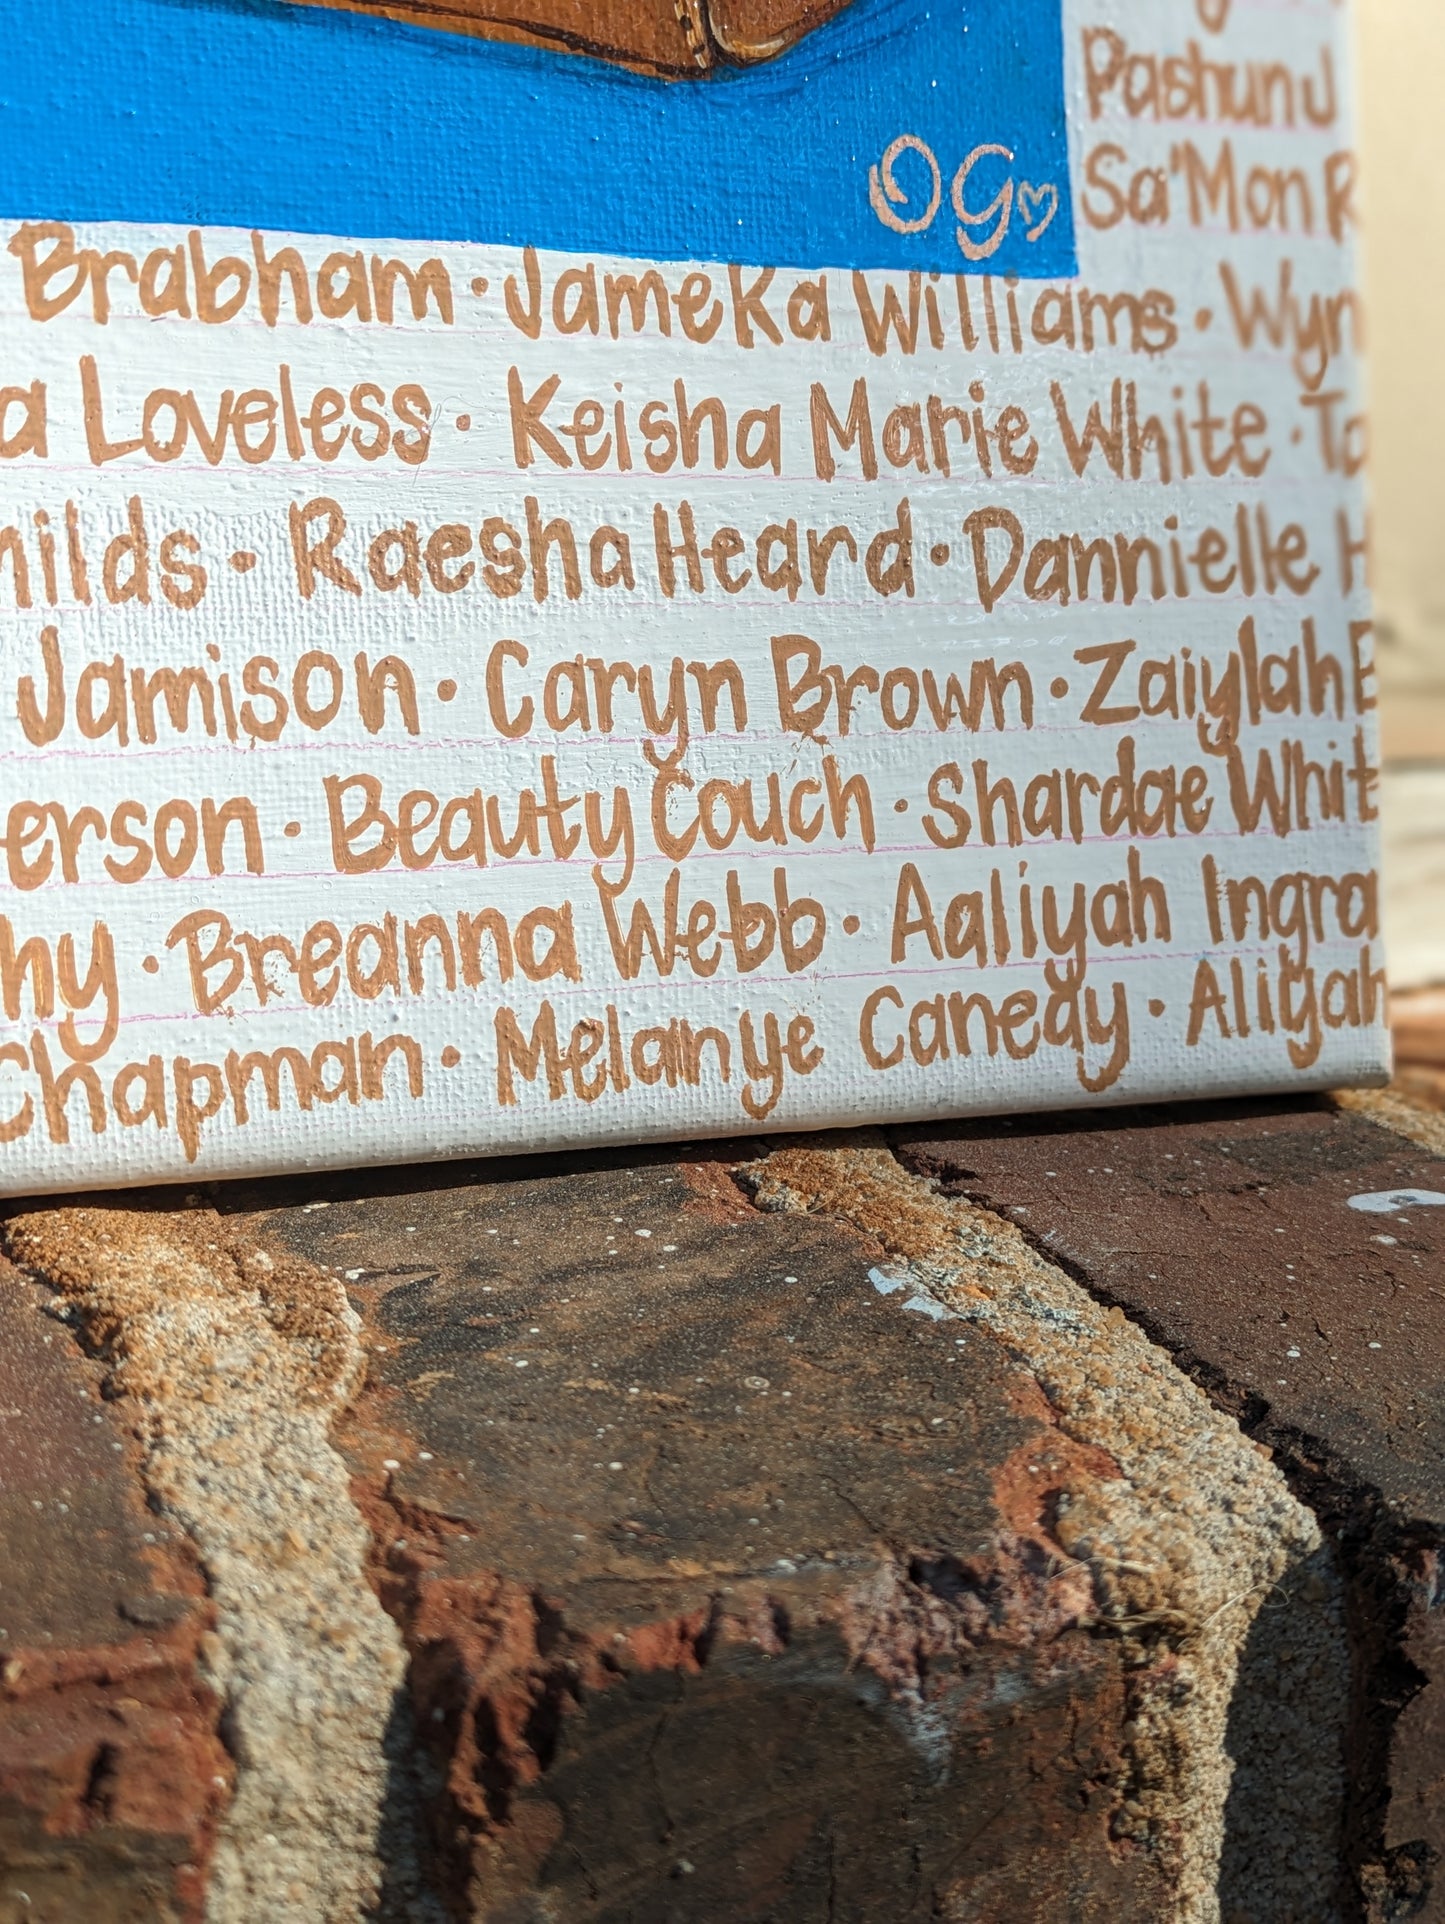 Pashun J
OG
Sa'Mon R
Brabham · Jameka Williams · Wyn
a Loveless · Keisha Marie White · To
hilds · Raesha Heard · Dannielle H
Jamison · Caryn Brown · Zaiylah B
erson · Beauty Couch · Shardae Whit
hy · Breanna Webb · Aaliyah Ingra
Chapman · Melanye Canedy · Aliyah